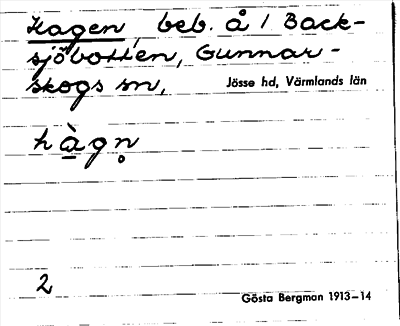 Hagen, beb. å 1 Back-
sjöbotten, Gunnar-
skogs sn,
Jösse hd, Värmlands län
hàgn̥
2
Gösta Bergman 1913–14